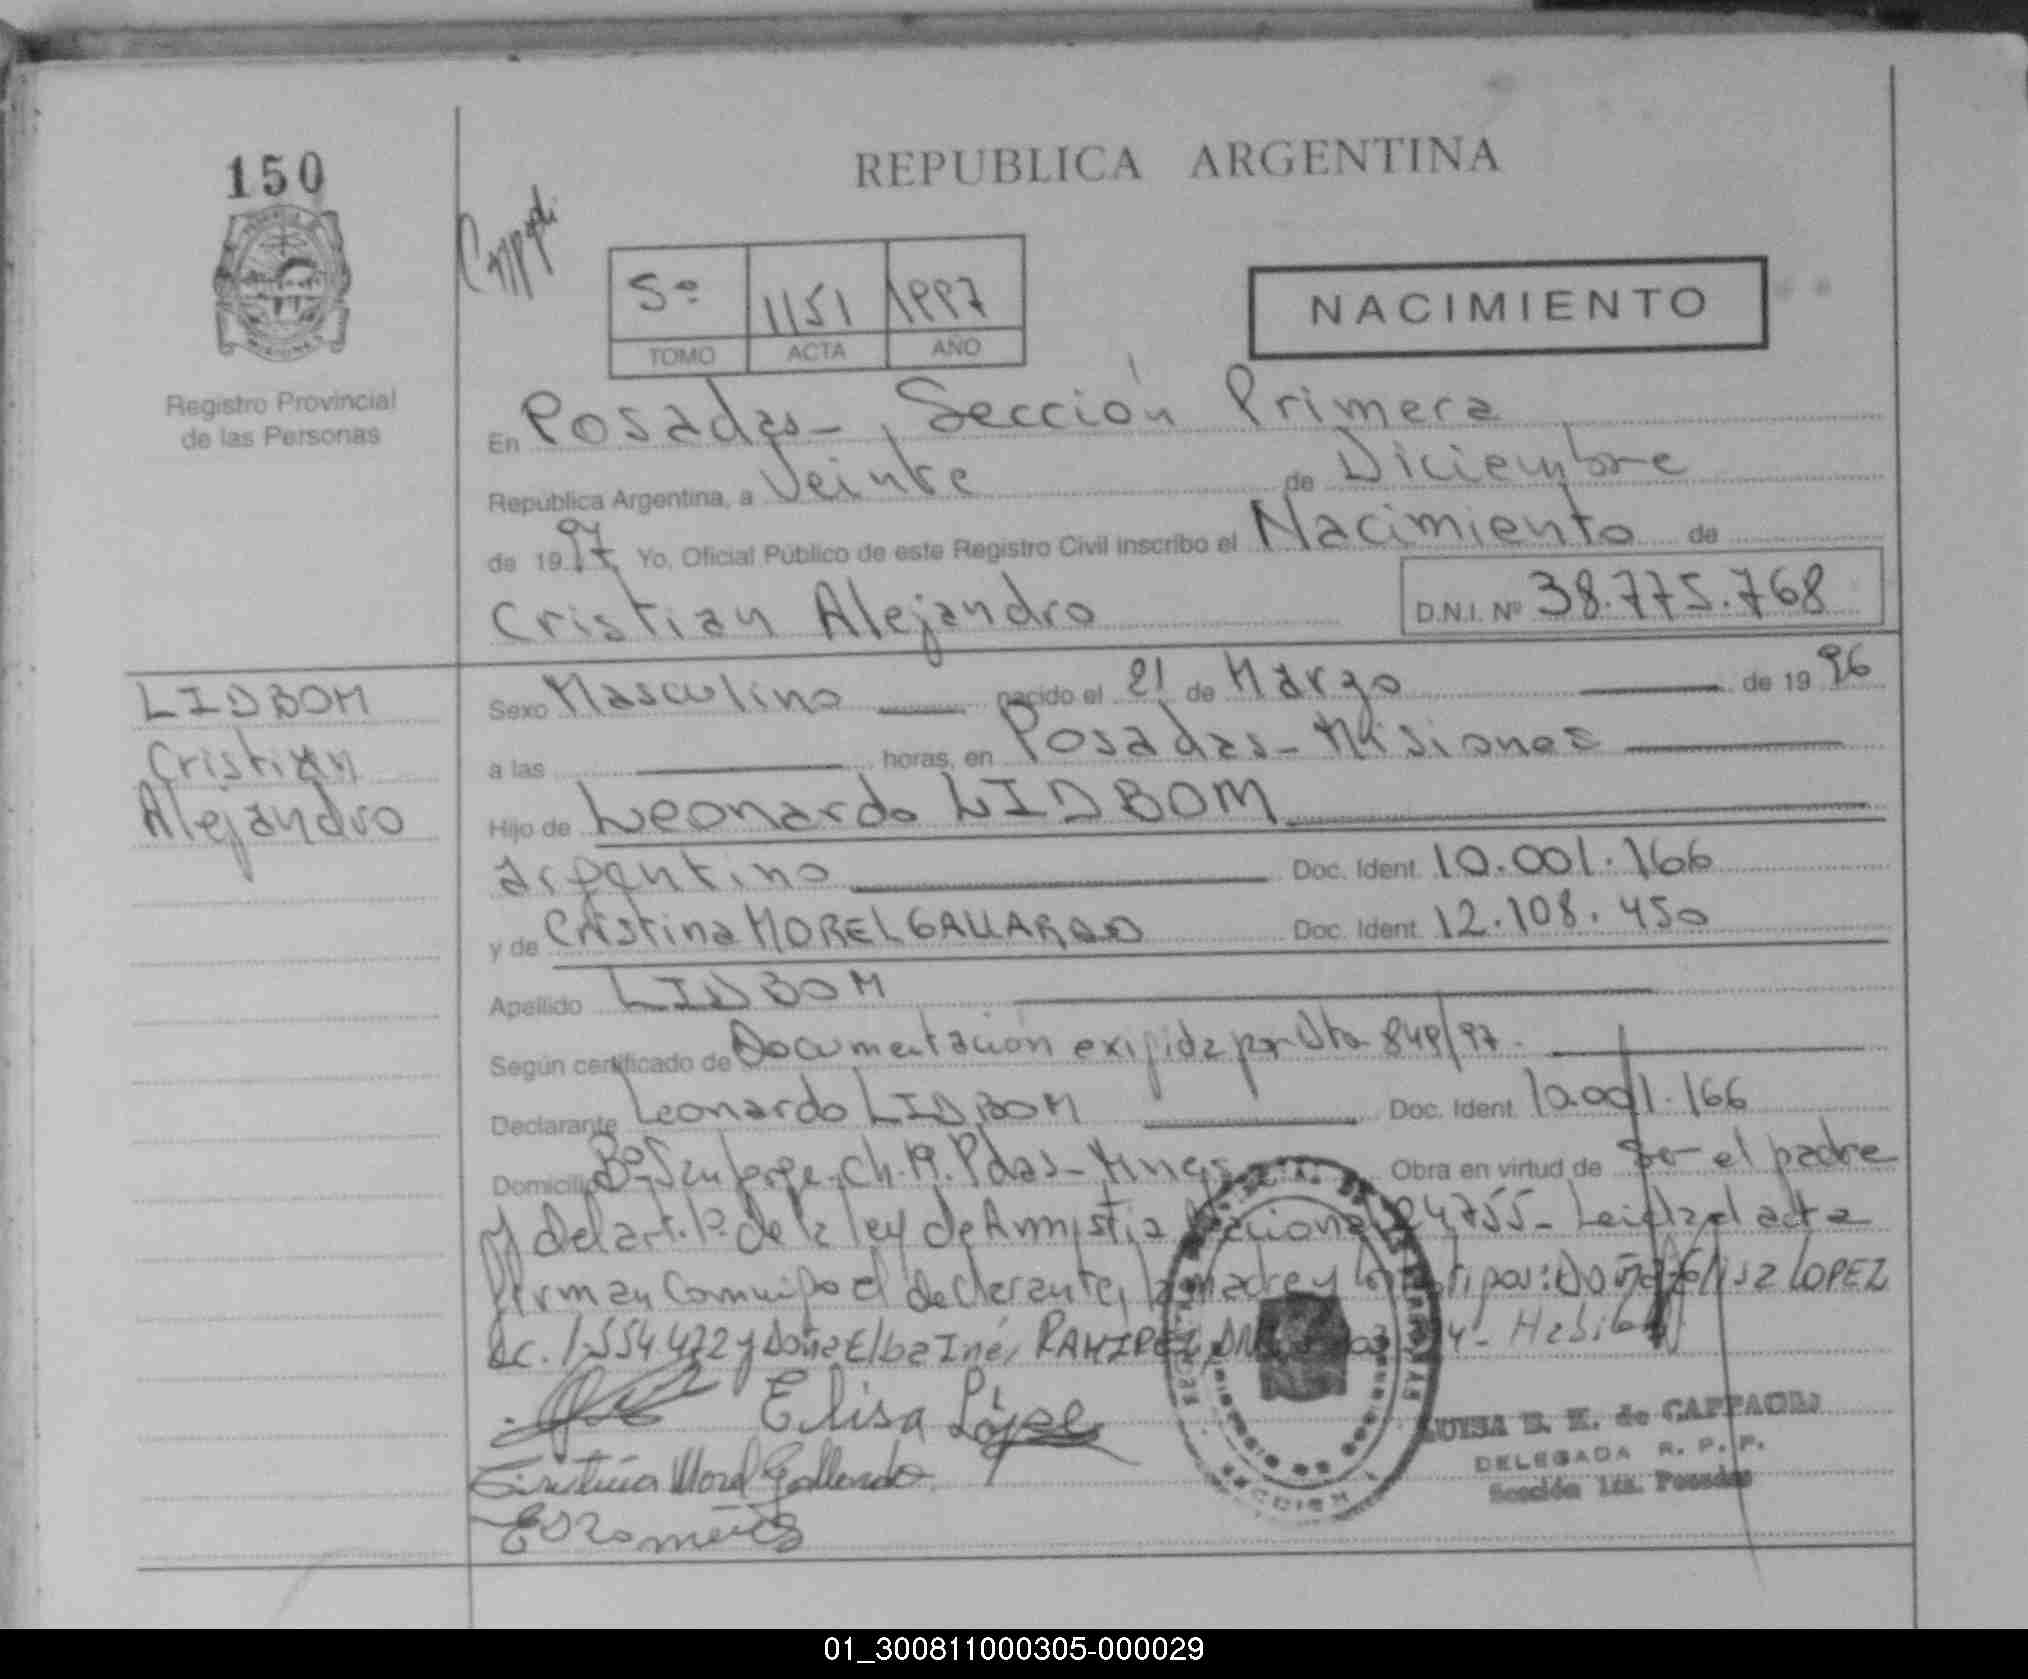 150
REPUBLICA ARGENTINA
5º 1151 1997
TOMO ACTA AÑO
NACIMIENTO
Registro Provincial
de las Personas
En Posadas - Sección Primera
República Argentina, a Veinte de Diciembre
de 1997. Yo, Oficial Público de este Registro Civil inscribo el Nacimiento de
Cristian Alejandro D.N.I. Nº 38.775.768
LIDBOM
Cristian
Alejandro
Sexo Masculino nacido el 21 de Marzo de 1996
a las horas, en Posadas - Misiones
Hijo de Leonardo LIDBOM
argentino Doc. Ident. 10.001.166
y de Cristina MOREL GALLARDO Doc. Ident. 12.108.450
Apellido LIDBOM
Según certificado de Documentación exigida por Dto 849/97.
Declarante Leonardo LIDBOM Doc. Ident. 10.001.166
Domicilio Bº San Jorge - Ch. Pdas - Mnes Obra en virtud de ser el padre
y del art. 1º de la ley de Amnistia Nacional 24755 - Leida el acta
firman conmigo el declarante, la madre y testigos: Doña Elisa LOPEZ
Lc. 1.554.472 y Doña Elba Iné, RAMIREZ, DNI
Elisa López
Cristina Morel Gallardo
LUISA E. K. de CAPPAGLI
DELEGADA R. P. P.
Sección 1ra. Posadas
01_300811000305-000029